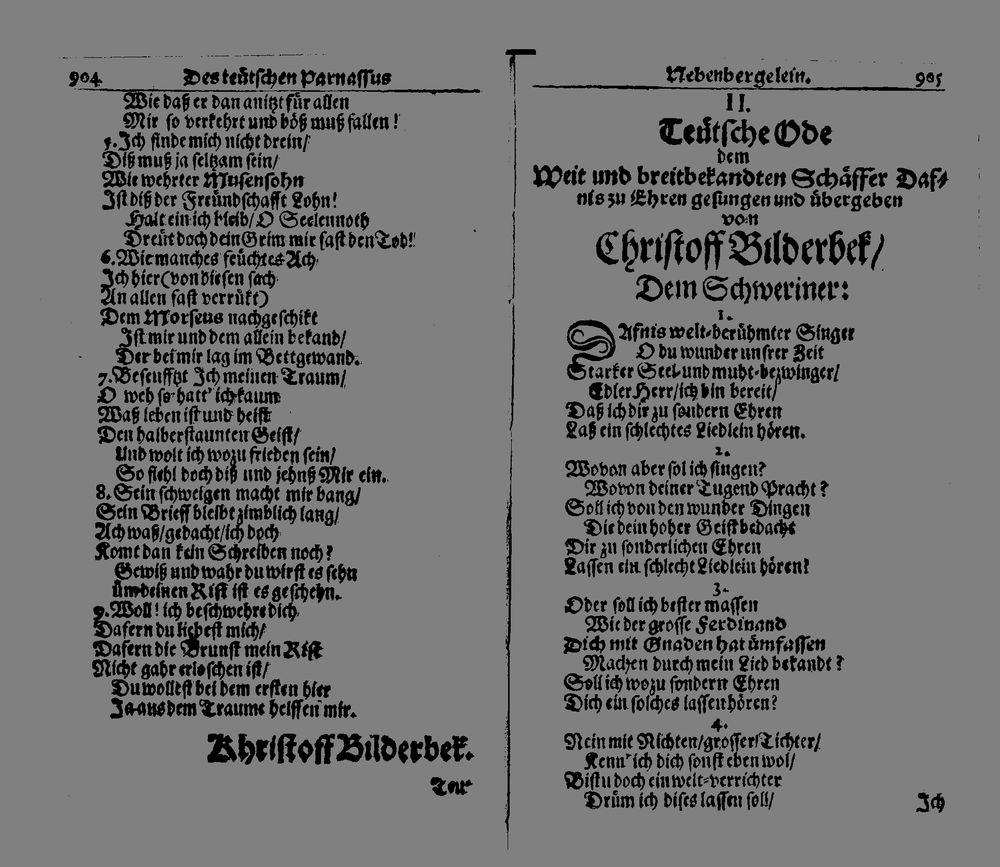 904 Des teütschen Parnassus
Wie daß er dan anitzt für allen
Mir so verkehrt und böß muß fallen!
5. Ich finde mich nicht drein/
Diß muß ja seltzam sein/
Wie wehrter Musensohn
Ist diß der Freündschafft Lohn!
Halt ein ich bleib/ O Seelennoth
Dreüt doch dein Grim mir fast den Tod!
6. Wie manches feüchtes Ach
Ich hier (von diesen sach
An allen fast verrükt)
Dem Morfeus nachgeschikt
Ist mir und dem allein bekand/
Der bei mir lag im Bettgewand.
7. Beseuffzt Ich meinen Traum/
O weh so hatt' ich kaum
Waß leben ist und heist
Den halberstaunten Geist/
Und wolt ich wozu frieden sein/
So fiehl doch diß und jehnß Mir ein.
8. Sein schweigen macht mir bang/
Sein Brieff bleibt zimblich lang/
Ach waß/ gedacht/ ich doch
Komt dan kein Schreiben noch?
Gewiß und wahr du wirst es sehn
üm deinen Rist ist es geschehn.
9. Woll! ich beschwehre dich
Dafern du liebest mich/
Dafern die Brunst mein Rist
Nicht gahr erloschen ist/
Du wollest bei dem ersten hier
Ja aus dem Traume helffen mir.
Khristoff Bilderbek.
Teü-
Nebenbergelein. 905
II.
Teütsche Ode
dem
Weit und breitbekandten Schäffer Daf-
nis zu Ehren gesungen und übergeben
von
Christoff Bilderbek/
Dem Schweriner:
1.
Dafnis welt-berühmter Singer
O du wunder unsrer Zeit
Starker Seel- und muht-bezwinger/
Edler Herr/ ich bin bereit/
Daß ich dir zu sondern Ehren
Laß ein schlechtes Liedlein hören.
2.
Wovon aber sol ich singen?
Wovon deiner Tugend Pracht?
Soll ich von den wunder Dingen
Die dein hoher Geist bedacht
Dir zu sonderlichen Ehren
Lassen ein schlecht Liedlein hören?
3.
Oder soll ich bester massen
Wie der grosse Ferdinand
Dich mit Gnaden hat ümfassen
Machen durch mein Lied bekandt?
Soll ich wozu sondern Ehren
Dich ein solches lassen hören?
4.
Nein mit Nichten/ grosser Tichter/
Kenn' ich dich sonst eben wol/
Bistu doch ein welt-verrichter
Drüm ich dises lassen soll/
Ich